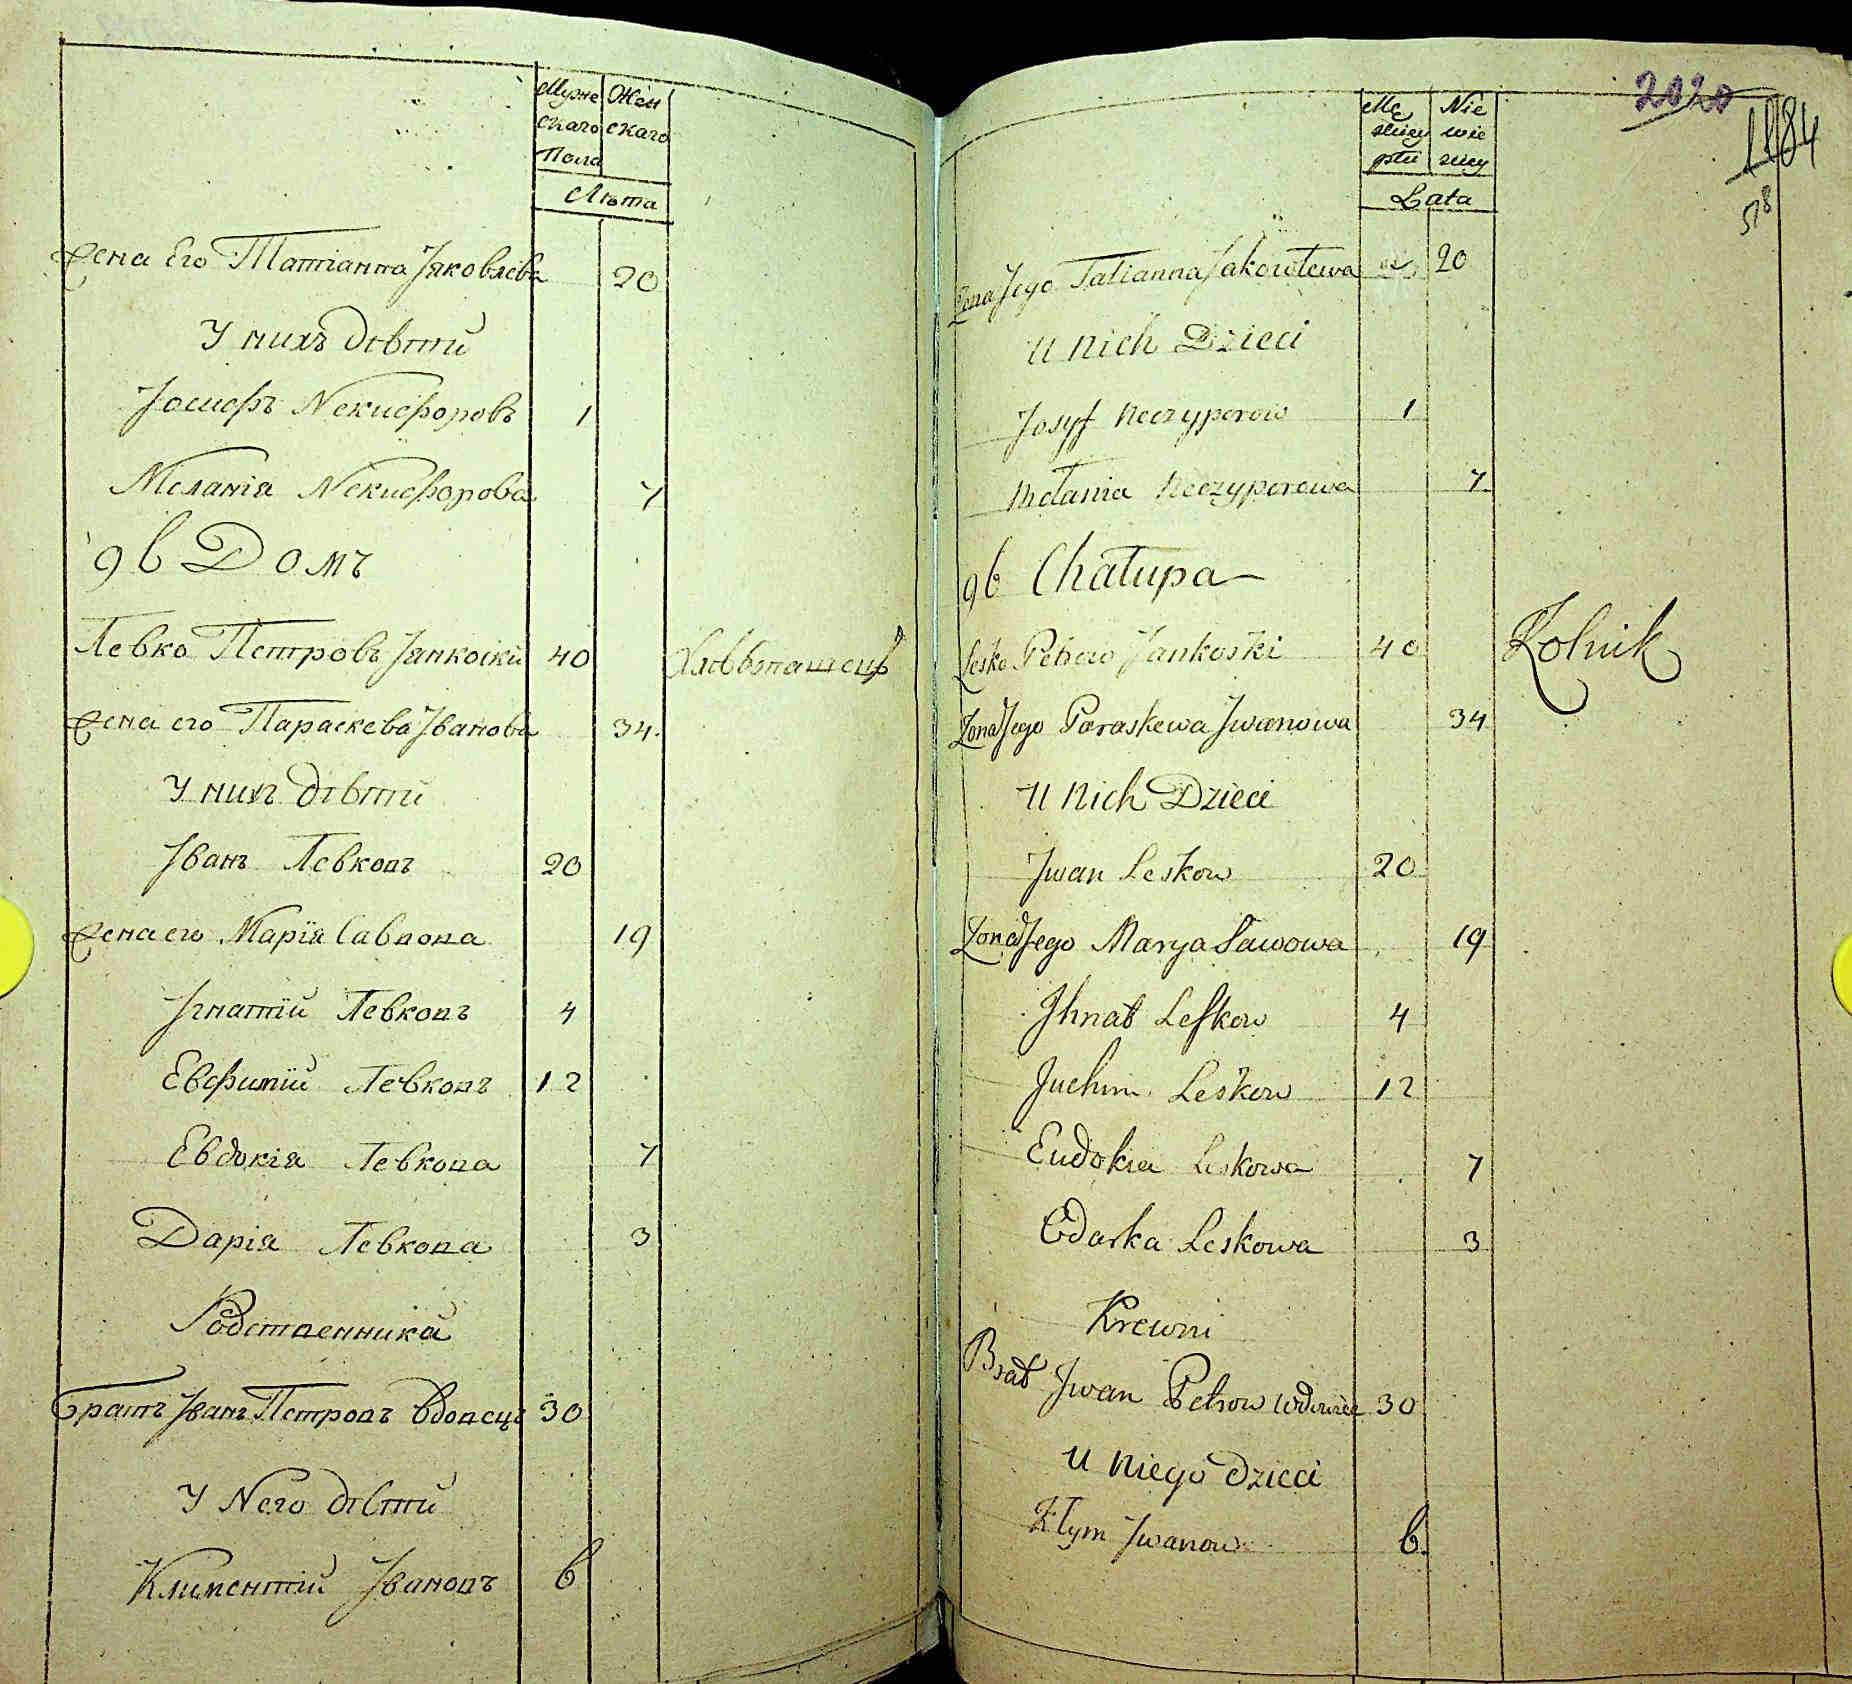 Муже Жен
скаго скаго
Пола
Лѣта
Жена Его Татіанна Яковлева 20
У нихъ дѣтти
Іосифъ Некифоровъ 1
Меланія Некифорова 7
96 Домъ
Левко Петровъ Янкоскій 40 Хлѣбпашецъ
Жена его Параскева Іванова 34
У нихъ дѣтти
Іванъ Левковъ 20
Жена его Марія Савова 19
Ігнатій Левковъ 4
Евфимій Левковъ 12
Евдокія Левкова 7
Дарія Левкова 3
Родственники
Братъ Іванъ Петровъ вдовецъ 30
У Него дѣтти
Климентій Івановъ 6
2020
1184
518
Mę Nie
skiey wie
płci skiey
Lata
Żona Jego Tatianna Jakowlewa 20
u nich Dzieci
Josyf Neczyporow 1
Mełania Neczyporowa 7
96 Chałupa
Lesko Petrow Jankoski 40 Rolnik
Żona Jego Paraskewa Jwanowa 34
u nich Dzieci
Jwan Leskow 20
Żona Jego Marya Sawowa 19
Jhnat Lefkow 4
Juchim Leskow 12
Eudokia Leskowa 7
Odarka Leskowa 3
Krewni
Brat Jwan Petrow wdowiec 30
u niego dzieci
Kłym Jwanow 6